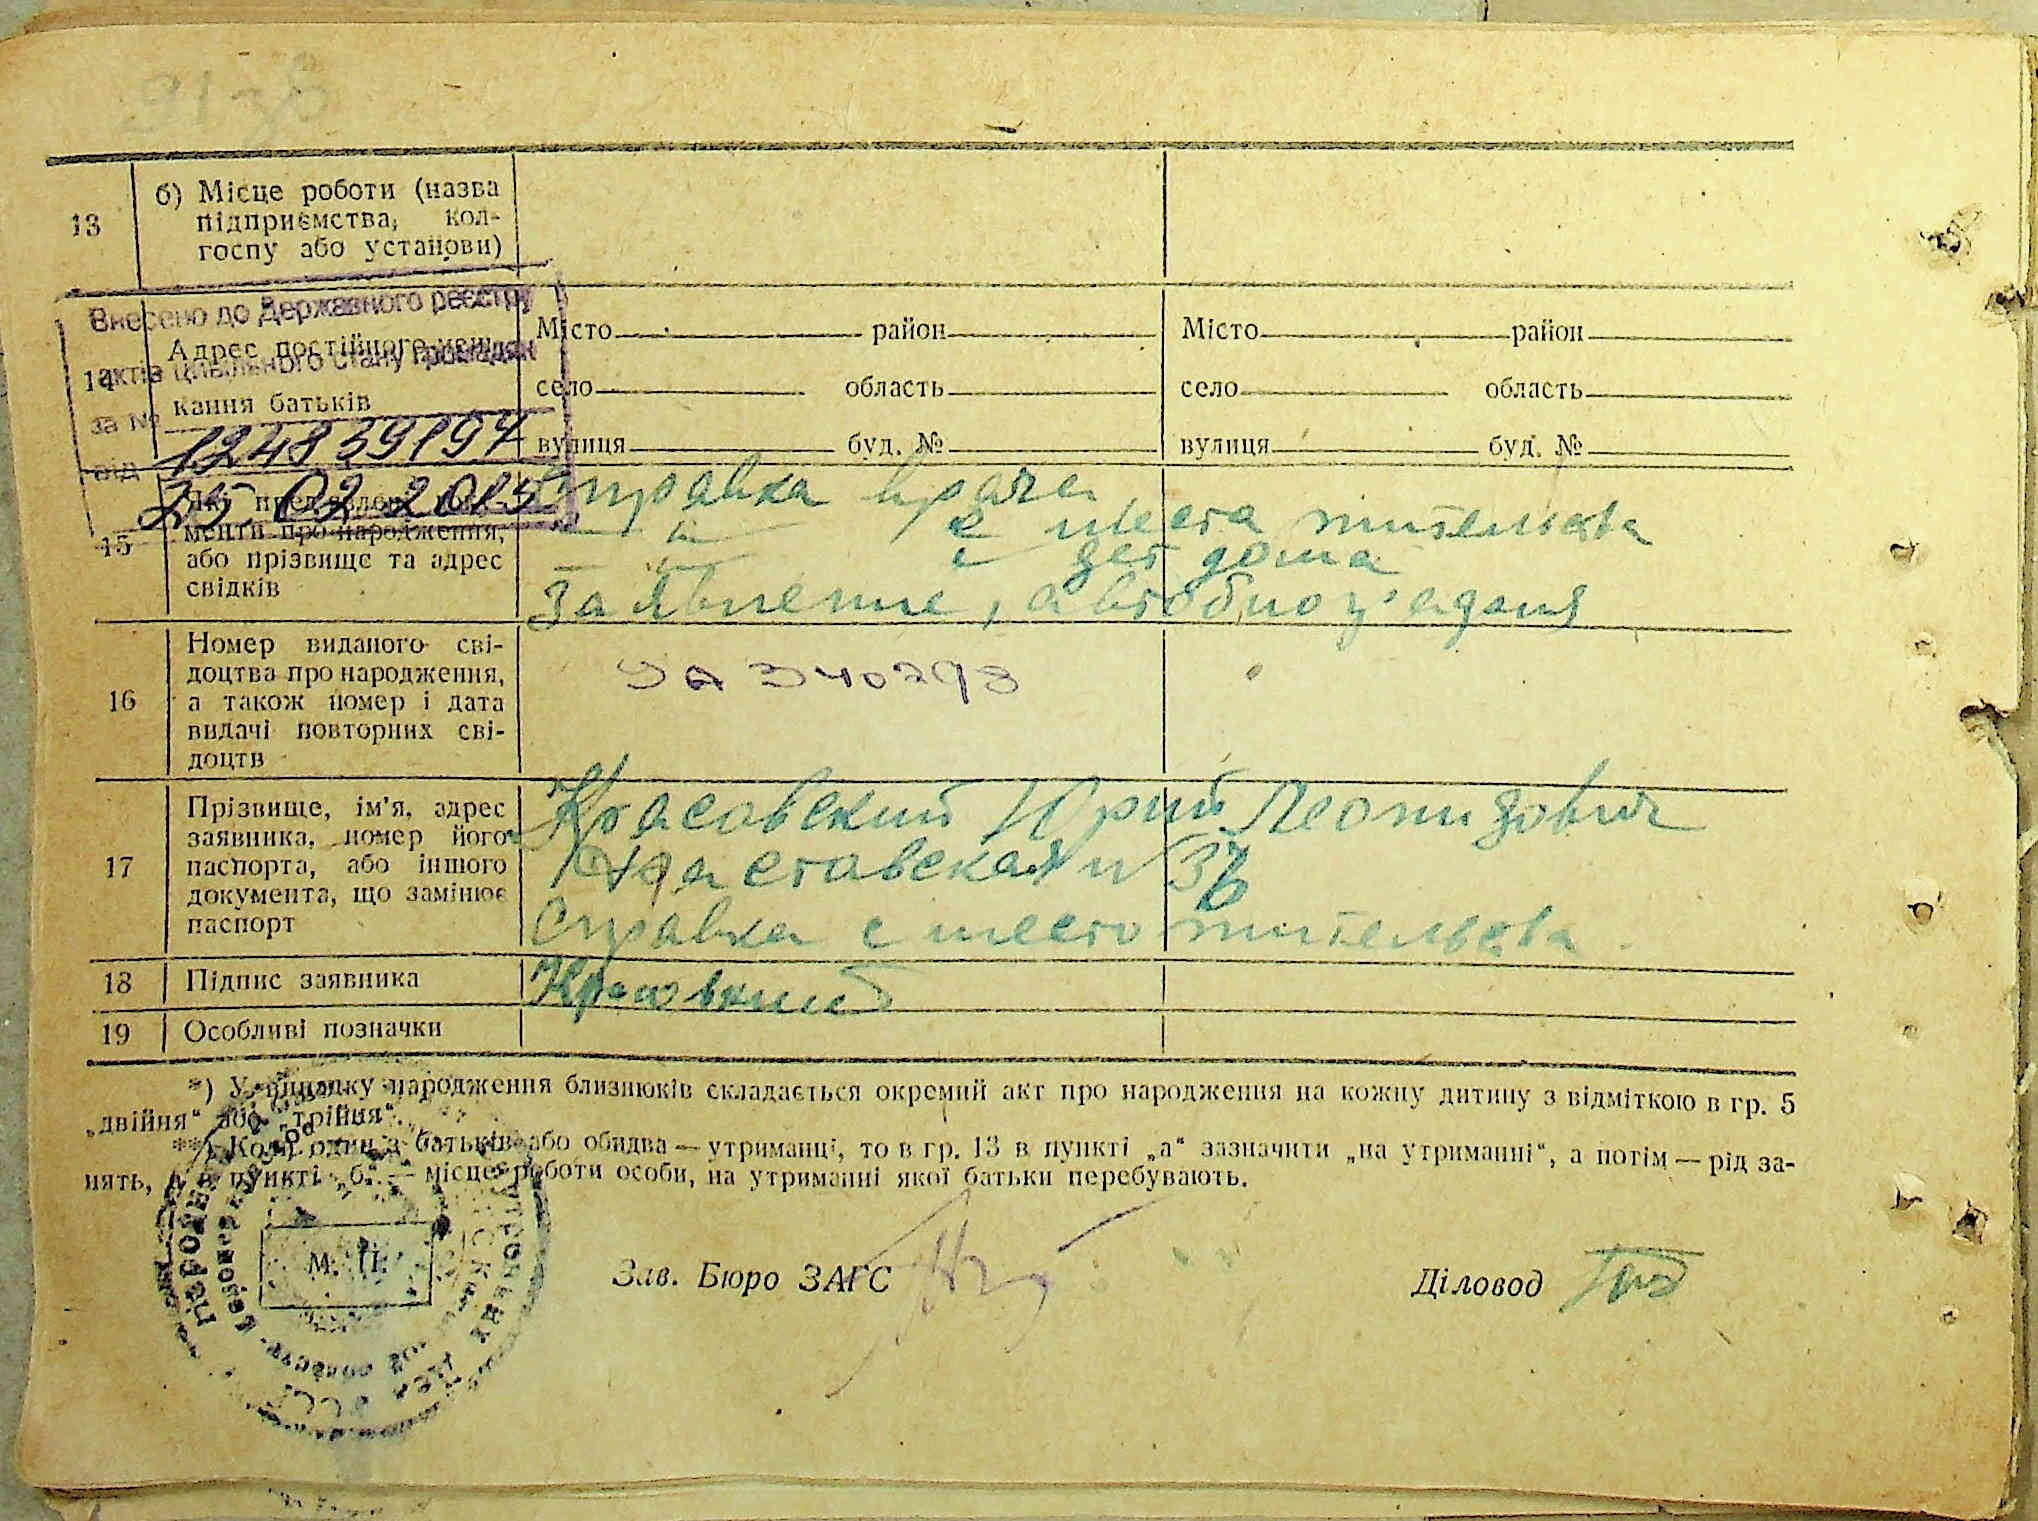 13
б) Місце роботи (назва
підприємства, кол-
госпу або установи)
Внесено до Державного реєстру
актів цивільного стану громадян
за № 124859197
від 25.02.2015
14
Адрес постійного
кання батьків
Місто район
село область
вулиця буд. №
Місто район
село область
вулиця буд. №
15
Які
менти про народження,
або прізвище та адрес
свідків
Справка врача,
— " — с места жительства
— " — с дет дома
Заявление, автобио
16
Номер виданого сві-
доцтва про народження,
а також номер і дата
видачі повторних сві-
доцтв
340298
17
Прізвище, ім'я, адрес
заявника, номер його
паспорта, або іншого
документа, що замінює
паспорт
Красовский Юрий Леонидович
№
Справка с место жительства
18
Підпис заявника
Красовский
19
Особливі позначки
*) У випадку народження близнюків складається окремий акт про народження на кожну дитину з відміткою в гр. 5
„двійня“ або „трійня“.
**) Коли один з батьків або обидва — утриманці, то в гр. 13 в пункті „а“ зазначити „на утриманні“, а потім — рід за-
нять, а в пункті „б“ — місце роботи особи, на утриманні якої батьки перебувають.
М. П.
Зав. Бюро ЗАГС
Діловод